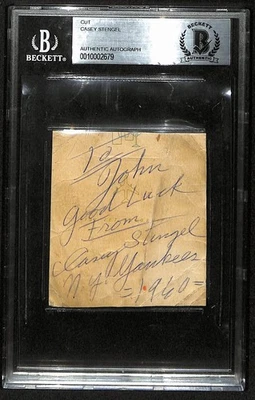 BECKETT
CUT
CASEY STENGEL
AUTHENTIC AUTOGRAPH
0010002679
BECKETT
AUTHENTIC
To
John
Good Luck
From
Casey Stengel
N.Y. Yankees
=1960=